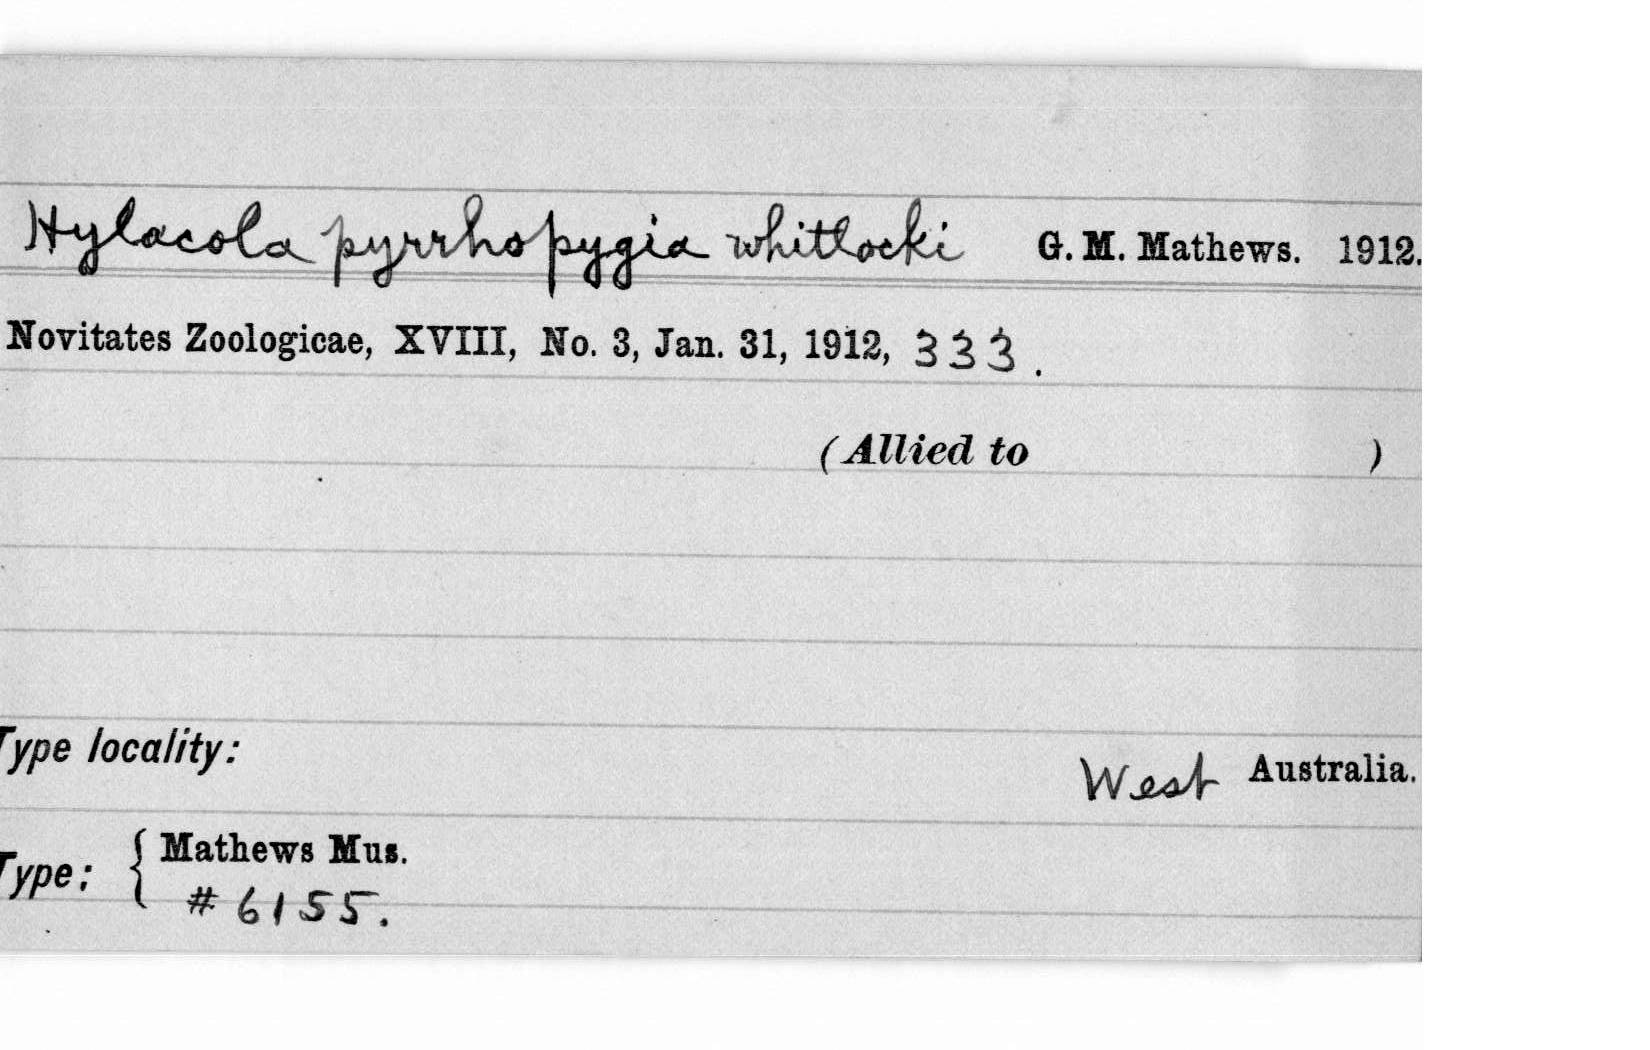 Hylacola pyrrhopygia whitlocki G. M. Mathews. 1912.
Novitates Zoologicae, XVIII, No. 3, Jan. 31, 1912, 333.
(Allied to )
Type locality:
West Australia.
Type: { Mathews Mus.
# 6155.